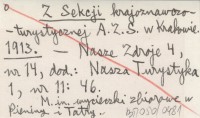 Z Sekcji krajoznawczo-
-turystycznej A.Z.S. w Krakowie.
1913. — Nasze Zdroje 4,
nr 14, dod.: Nasza Turystyka
1, nr 11: 46.
M. in. wycieczki zbiorowe w
Pieniny - Tatry.